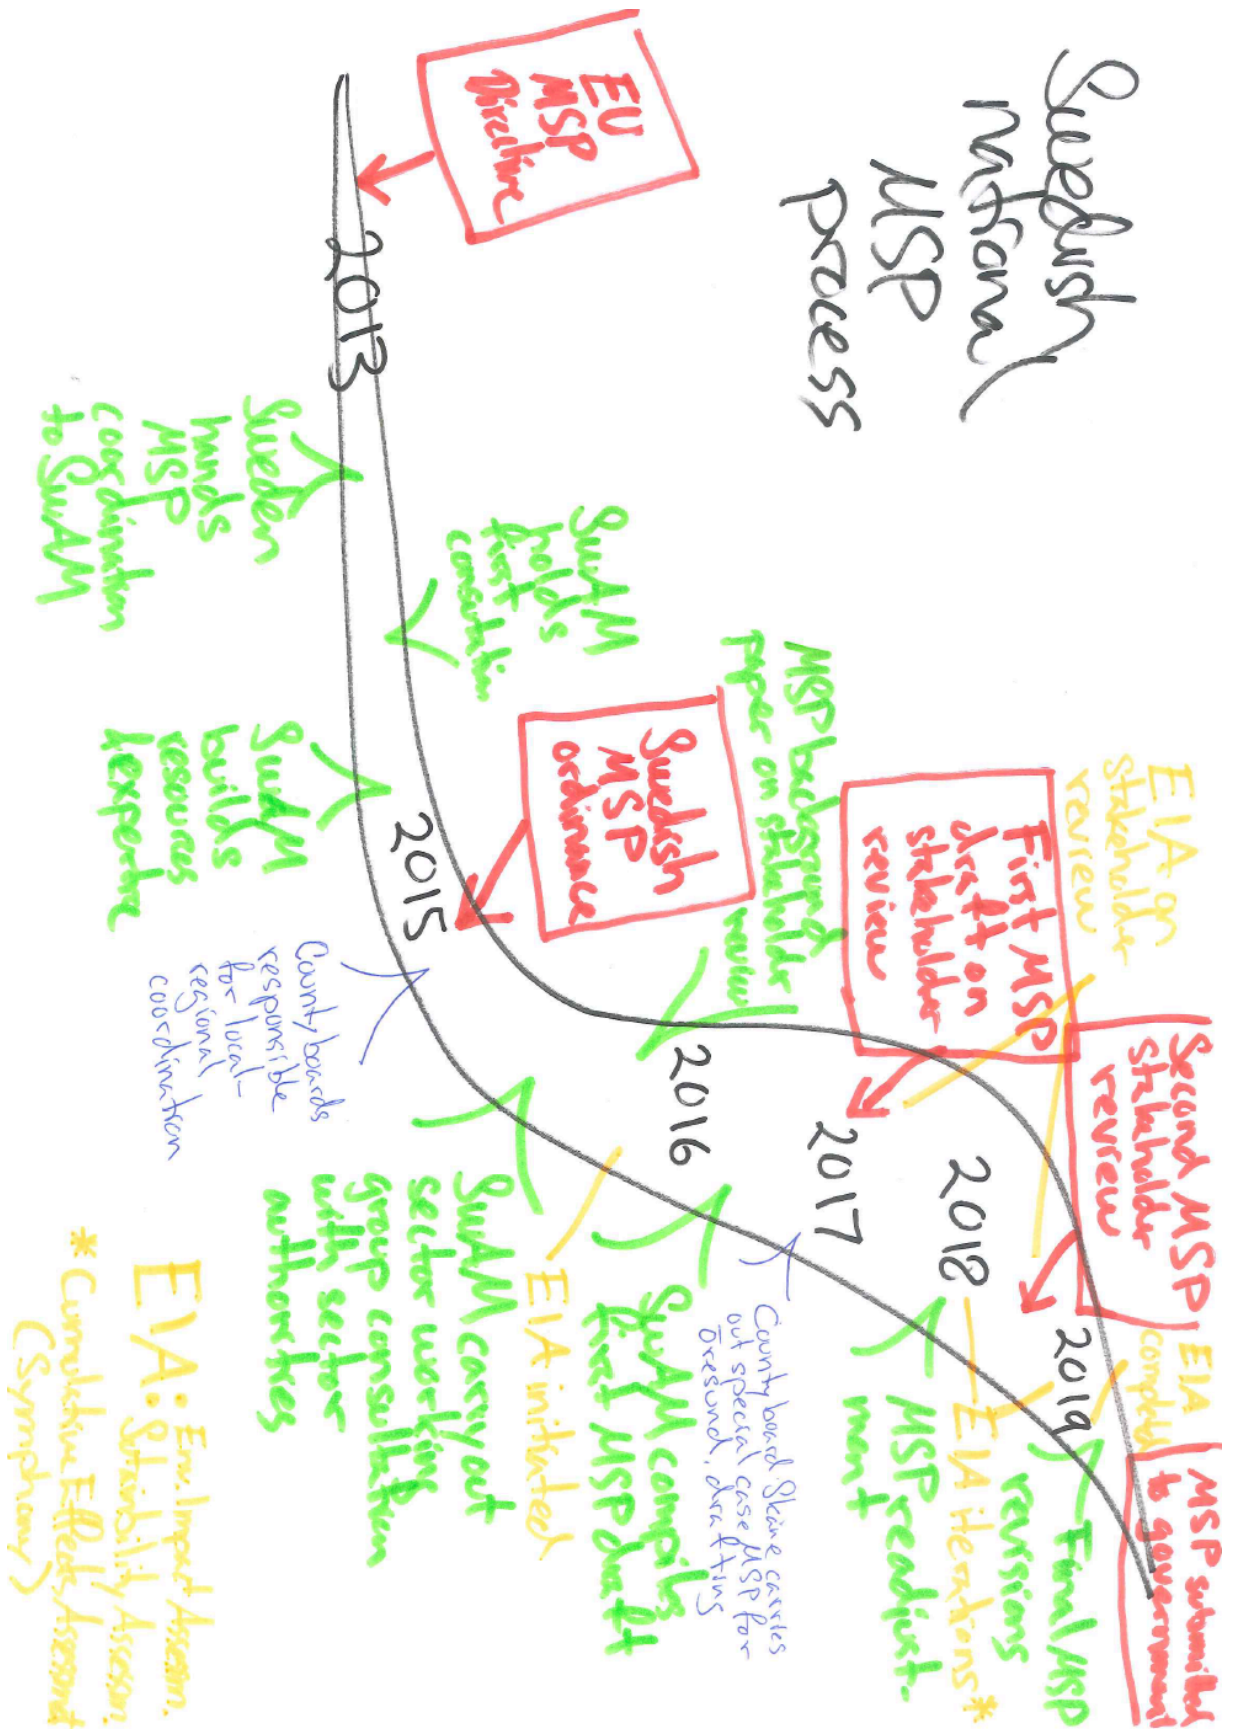 Swedish
national
MSP
process
EU
MSP
Directive
2013
Sweden
hands
MSP
coordination
to SwAM
SwAM
holds
first
consultation
SwAM
builds
resources
& expertise
Swedish
MSP
ordinance
2015
County boards
responsible
for local-
regional
coordination
MSP background
paper on stakeholder
review
2016
SwAM carry out
sector working
group consultation
with sector
authorities
EIA initiated
SwAM compiles
first MSP draft
First MSP
draft on
stakeholder
review
2017
County board Skåne carries
out special case MSP for
Öresund, drafting
EIA on
stakeholder
review
2018
MSP readjust-
ment
EIA iterations*
Second MSP
stakeholder
review
2019
EIA
completed
Final MSP
revisions
MSP submitted
to government
EIA: Env. Impact Assessm.
Sustainability Assessm.
* Cumulative Effects Assessment
(Symphony)